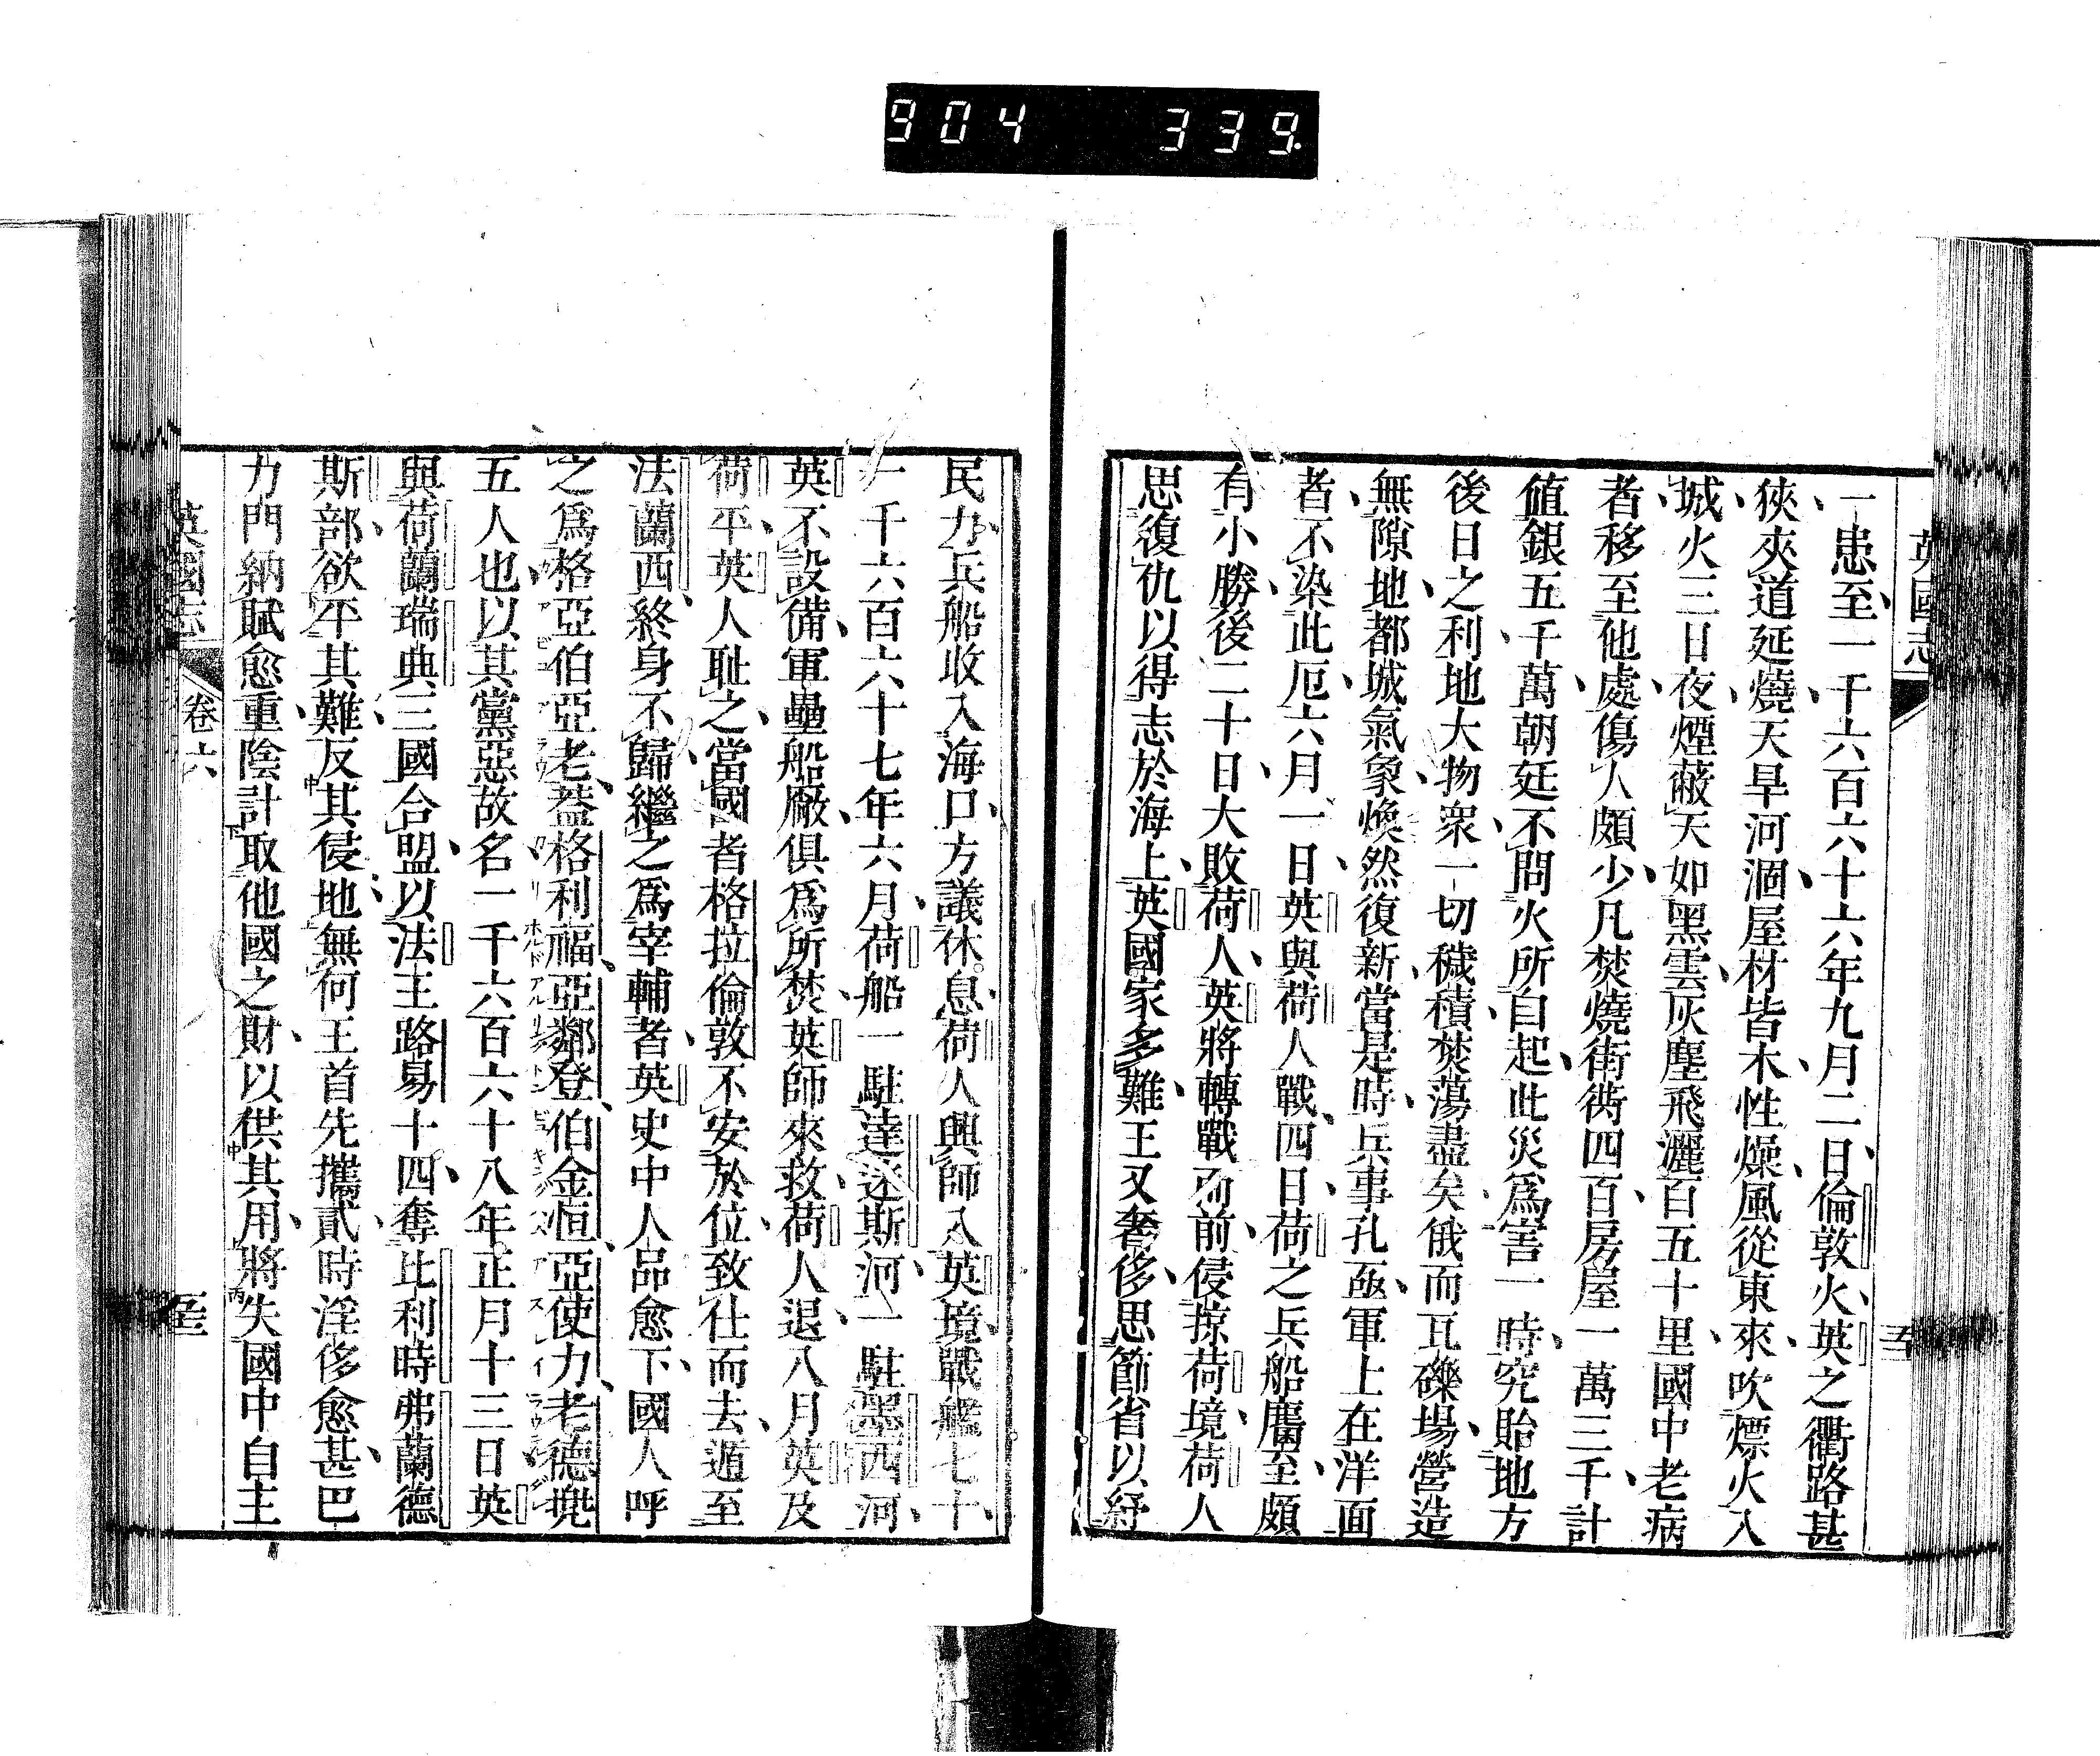 904 339
英國志
一患至一千六百六十六年九月二日倫敦火英之衢路甚
狹夾道延燒天旱河涸屋材皆木性燥風從東來吹熛火入
城火三日夜煙蔽天如黑雲灰塵飛灑百五十里國中老病
者移至他處傷人頗少凡焚燒街衖四百房屋一萬三千計
値銀五千萬朝廷不問火所自起此災爲害一時究貽地方
後日之利地大物衆一切穢積焚蕩盡矣俄而瓦礫場營造
無隙地都城氣象煥然復新當是時兵事孔亟軍士在洋面
者不染此厄六月一日英與荷人戰四日荷之兵船麕至頗
有小勝後二十日大敗荷人英將轉戰而前侵掠荷境荷人
思復仇以得志於海上英國家多難王又奢侈思節省以紓
民力兵船收入海口方議休息荷人興師入英境戰艦七十
一千六百六十七年六月荷船一駐達迷斯河一駐墨西河
英不設備軍壘船廠俱爲所焚英師來救荷人退八月英及
荷平英人耻之當國者格拉倫敦不安於位致仕而去遁至
法蘭西終身不歸繼之爲宰輔者英史中人品愈下國人呼
之爲格亞伯亞老葢格利福亞鄰登伯金恒亞使力老德拋
五人也以其黨惡故名一千六百六十八年正月十三日英
與荷蘭瑞典三國合盟以法王路易十四奪比利時弗蘭德
斯部欲平其難反其侵地無何王首先攜貳時淫侈愈甚巴
力門納賦愈重陰計取他國之財以供其用將失國中自主
英國志
卷六